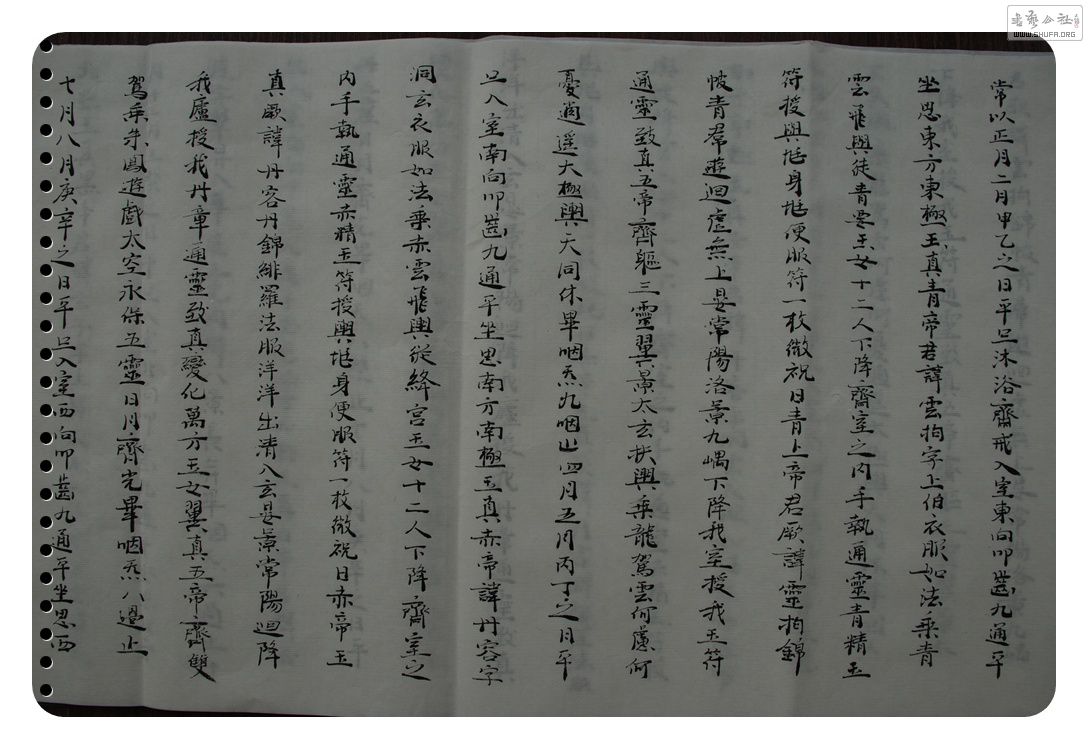 常以正月二月甲乙之日平旦沐浴齋戒入室東向叩齒九通平
坐思東方東極玉真青帝君諱雲拘字上伯衣服如法乘青
雲飛輿從青要玉女十二人下降齋室之內手執通靈青精玉
符授與兆身兆便服符一枚微祝曰青上帝君厥諱靈拘錦
帔青裙遊迴虛無上晏常陽洛景九嵎下降我室授我玉符
通靈致真五帝齊軀三靈翼景太玄扶輿乘龍駕雲何慮何
憂逍遥太極與天同休畢咽炁九咽止四月五月丙丁之日平
旦入室南向叩齒九通平坐思南方南極玉真赤帝諱丹容字
洞玄衣服如法乘赤雲飛輿從絳宮玉女十二人下降齋室之
內手執通靈赤精玉符授與兆身便服符一枚微祝曰赤帝玉
真厥諱丹容丹錦緋羅法服洋洋出清入玄晏景常陽迴降
我廬授我丹章通靈致真變化萬方玉女翼真五帝齊雙
駕乘朱鳳遊戲太空永保五靈日月齊光畢咽炁八過止
七月八月庚辛之日平旦入室西向叩齒九通平坐思西
書藝公社
WWW.SHUFA.ORG